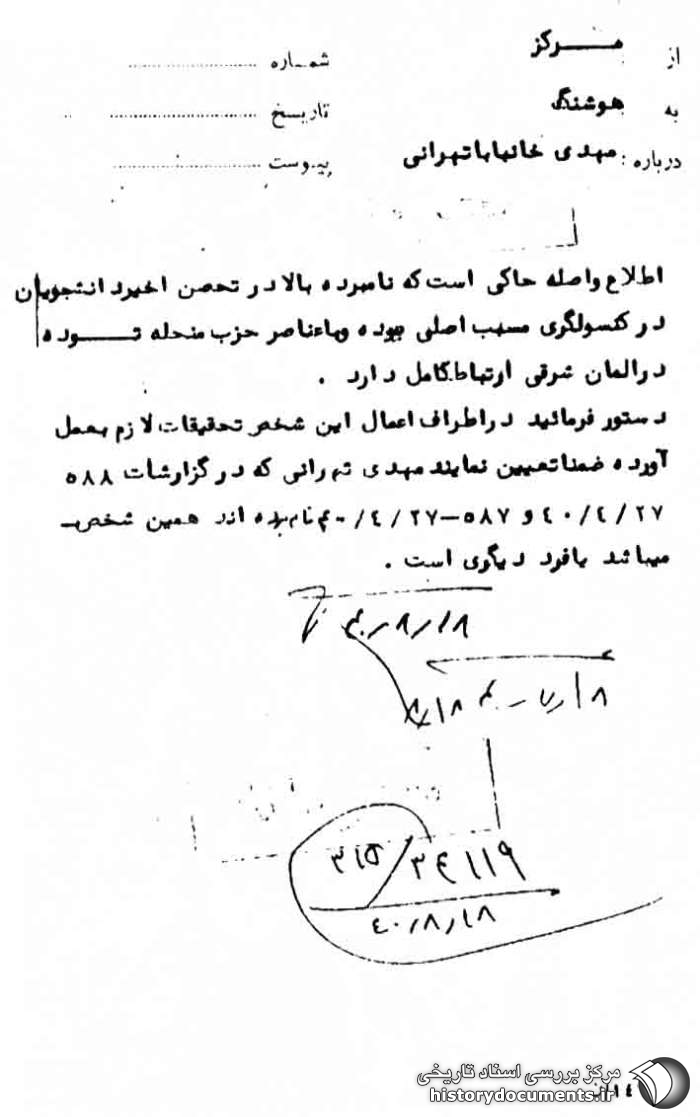 از مرکز
شماره
به هوشنگ
تاریخ
درباره : مهدی خانباباتهرانی
پیوست
اطلاع واصله حاکی است که نامبرده بالا در تحصن اخیر دانشجویان
در کنسولگری مسبب اصلی بوده وباعناصر حزب منحله توده
درالمان شرقی ارتباط کامل دارد .
دستور فرمائید دراطراف اعمال این شخص تحقیقات لازم بعمل
آورده ضمنا تعیین نمایند مهدی تهرانی که در گزارشات ۵۸۸
۴۰/۴/۲۷ و ۵۸۷-۴/۲۷/۴۰ نام برده اند همین شخص
میباشد یافرد دیگری است .
۴۰/۸/۱۸
۱۸
۳۱۵/۳۴۱۱۹
۴۰/۸/۱۸
مرکز بررسی اسناد تاریخی
historydocuments.ir